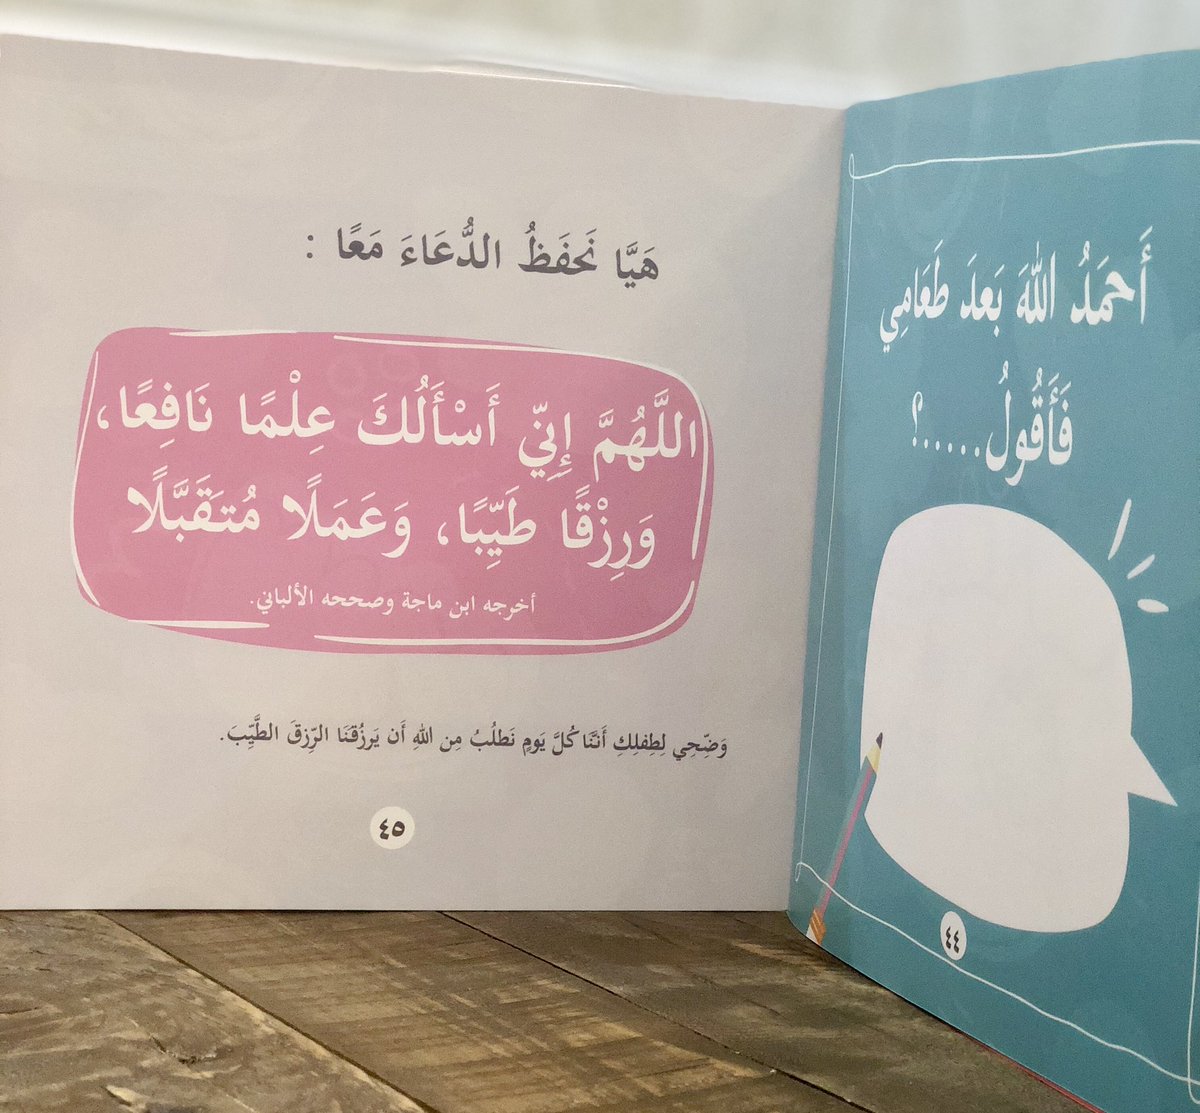 أَحمَدُ اللهَ بَعدَ طَعَامِي
فَأَقُولُ......؟
٤٤
هَيَّا نَحفَظُ الدُّعَاءَ مَعًا :
اللَّهُمَّ إِنِّي أَسْأَلُكَ عِلْمًا نَافِعًا،
وَرِزْقًا طَيِّبًا، وَعَمَلًا مُتَقَبَّلًا
أخرجه ابن ماجة وصححه الألباني.
وَضِّحِي لِطِفلِكِ أَنَّنَا كُلَّ يَومٍ نَطلُبُ مِن اللهِ أَن يَرزُقَنَا الرِّزقَ الطَّيِّبَ.
٤٥